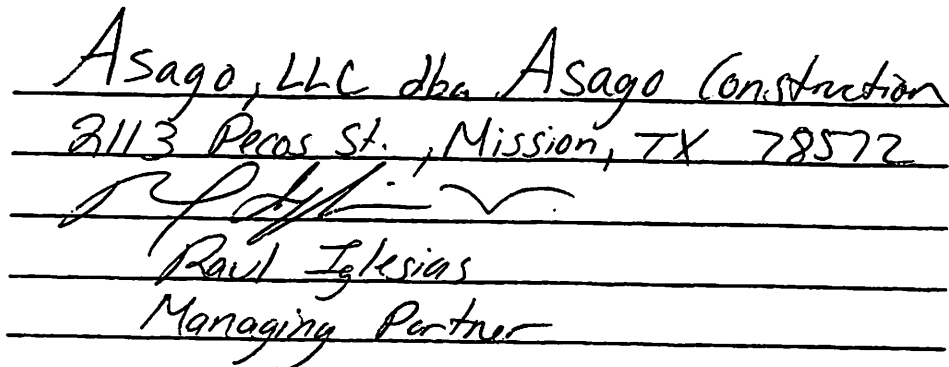 Asago, LLC dba Asago Construction
2113 Pecos St., Mission, TX 78572
Raul Iglesias
Managing Partner